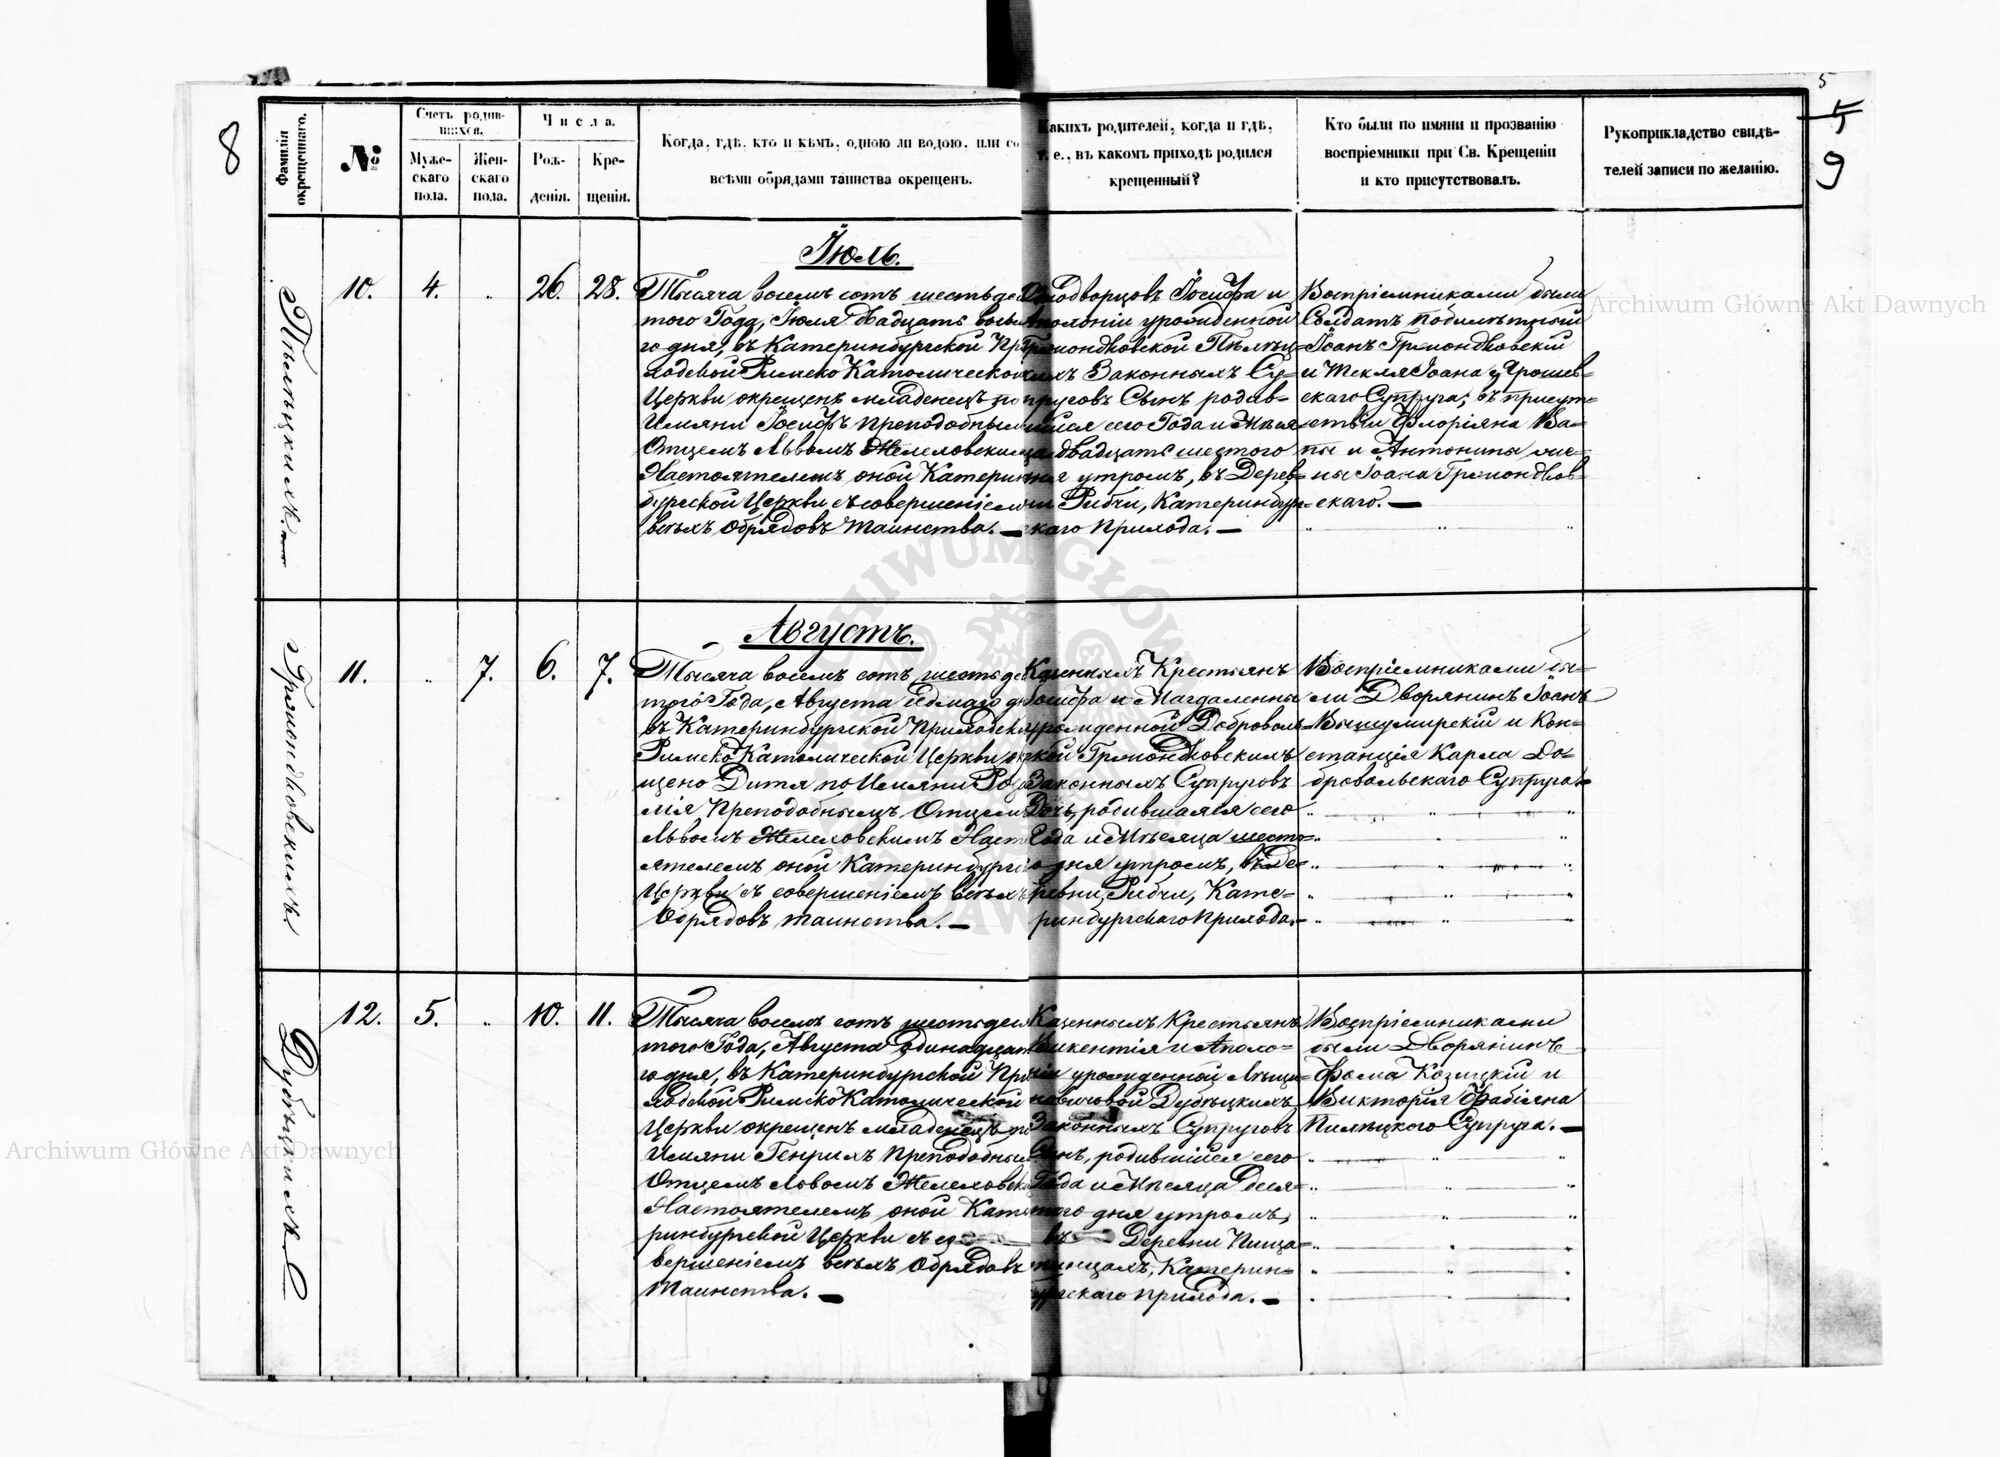 8
5
5
9
Фамилія окрещеннаго.
№
Счетъ родившихся.
Мужескаго пола.
Женскаго пола.
Числа.
Рожденія.
Крещенія.
Когда, гдѣ, кто и кѣмъ, одною ли водою, или со
всѣми обрядами таинства окрещенъ.
Какихъ родителей, когда и гдѣ,
т. е., въ какомъ приходѣ родился
крещенный?
Кто были по имяни и прозванію
воспріемники при Св. Крещеніи
и кто присутствовалъ.
Рукоприкладство свидѣ-
телей записи по желанію.
Іюль.
10.
4.
26.
28.
Тысяча восемъ сотъ шестьде
того Года, Іюля двадцать
го дня, въ Катеринбургской Пр
ходской Римско Католической
Церкви окрещенъ младенецъ по
Имяни Іосифъ Преподобным
Отцемъ Львомъ Желеховским
Настоятелемъ оной Катерин
бургской Церкви съ совершеніем
всѣхъ Обрядовъ Таинства. —
Однодворцовъ Іосифа и
Аполоніи урожденной
Грмондковской
Законныхъ Су-
пруговъ Сынъ родив-
шійся сего Года и Мѣся
ца двадцать шестого
дня утромъ, въ Дерев-
ни Рибчи, Катеринбург-
скаго Прихода. —
Воспріемниками были
Солдатъ
Іоанъ Грмондковскій
и Текля Іоана
скаго Супруга; въ присут-
ствіи Флоріяна Ва-
ны и Антонины же-
ны Іоана Грмондков-
скаго. —
Августъ.
Грмондковскихъ
11.
7.
6.
7.
Тысяча восемъ сотъ шестьде
того Года, Августа Седмаго д
въ Катеринбургской Приходск
Римско Католической Церкви ок
щено Дитя по Имяни Ро
лія Преподобнымъ Отцем
Львомъ Желеховскимъ Наст
ятелемъ оной Катеринбургс
Церкви съ совершеніемъ всѣхъ
Обрядовъ таинства. —
Казенныхъ Крестьянъ
Іосифа и Магдалены
урожденной Доброволь-
ской Грмондковскихъ
Законныхъ Супруговъ
Дочь, родившаяся сего
Года и Мѣсяца шесто-
го дня утромъ, въ Де-
ревни Рибчи, Кате-
ринбургскаго Прихода.
Воспріемниками бы-
ли Дворянинъ Іоанъ
Вышумирскій и Кон-
станція Карла До-
бровольскаго Супруга
12.
5.
10.
11.
Тысяча восемъ сотъ шестьдеся
того Года, Августа Одинадцат
го дня, въ Катеринбургской При
ходской Римско Католической
Церкви окрещенъ младенецъ по
Имяни Генрихъ Преподобным
Отцемъ Львомъ Желеховск
Настоятелемъ оной Кате
ринбургской Церкви съ со
вершеніемъ всѣхъ Обрядовъ
Таинства. —
Казенныхъ Крестьянъ
Викентія и Аполо-
ніи урожденной
Дубѣцкихъ
Законныхъ Супруговъ
Сынъ, родившійся сего
Года и Мѣсяца Деся-
того дня утромъ,
въ Деревни Пища-
линцахъ, Катерин-
бургскаго прихода. —
Воспріемниками
были Дворянинъ
Фома Козицкій и
Викторія Фабіяна
Супруга. —
Archiwum Główne Akt Dawnych
Archiwum Główne Akt Dawnych